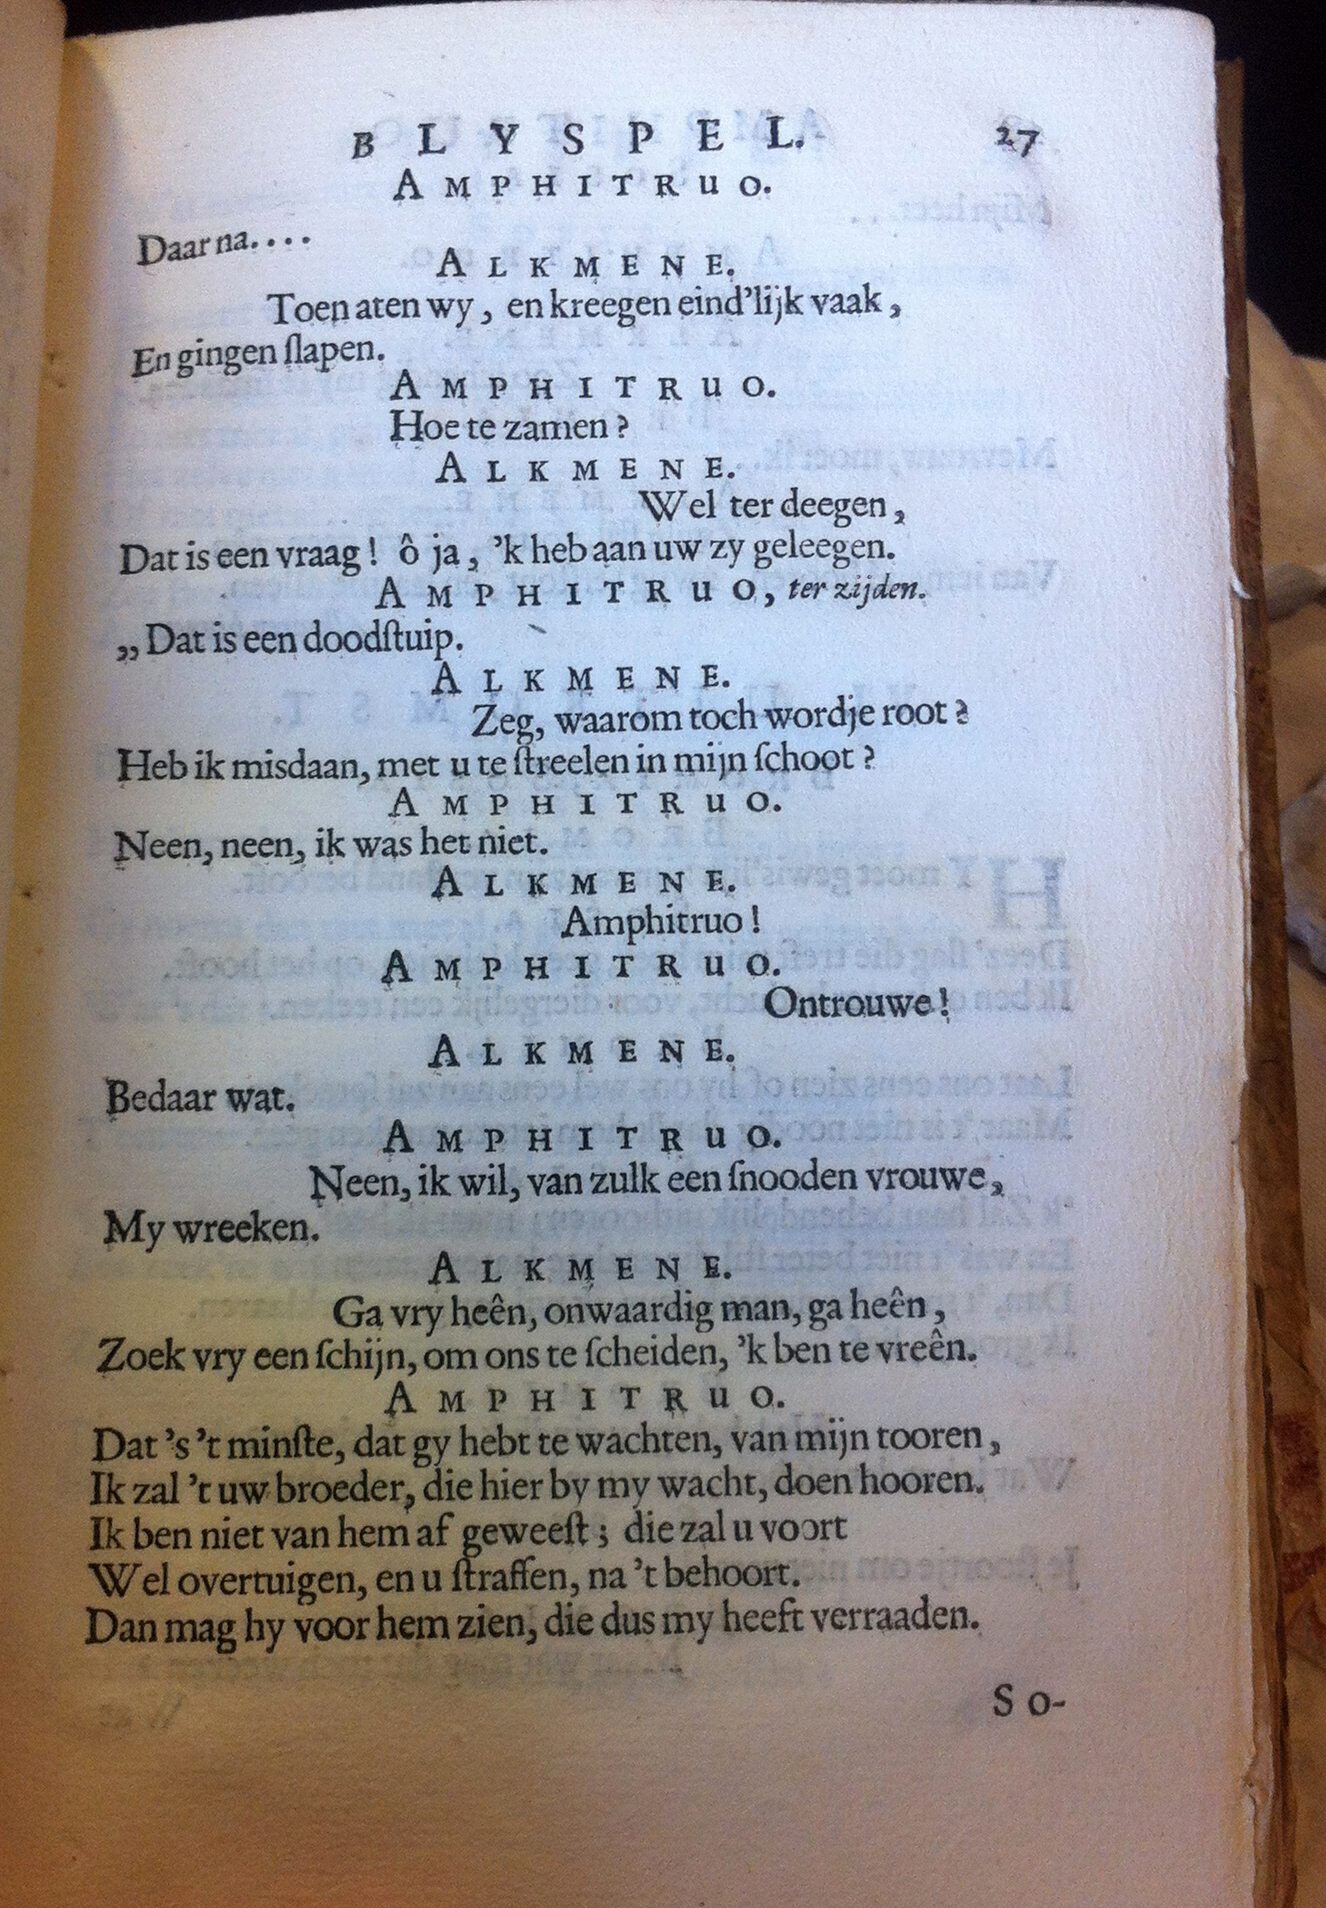 BLYSPEL. 27
AMPHITRUO.
Daar na....
ALKMENE.
Toen aten wy, en kreegen eind'lijk vaak,
En gingen ſlapen.
AMPHITRUO.
Hoe te zamen?
ALKMENE.
Wel ter deegen,
Dat is een vraag! ô ja, 'k heb aan uw zy geleegen.
AMPHITRUO, ter zijden.
„Dat is een doodſtuip.
ALKMENE.
Zeg, waarom toch wordje root?
Heb ik misdaan, met u te ſtreelen in mijn ſchoot?
AMPHITRUO.
Neen, neen, ik was het niet.
ALKMENE.
Amphitruo!
AMPHITRUO.
Ontrouwe!
ALKMENE.
Bedaar wat.
AMPHITRUO.
Neen, ik wil, van zulk een ſnooden vrouwe,
My wreeken.
ALKMENE.
Ga vry heên, onwaardig man, ga heên,
Zoek vry een ſchijn, om ons te ſcheiden, 'k ben te vreên.
AMPHITRUO.
Dat 's 't minſte, dat gy hebt te wachten, van mijn tooren,
Ik zal 't uw broeder, die hier by my wacht, doen hooren.
Ik ben niet van hem af geweeſt; die zal u voort
Wel overtuigen, en u ſtraffen, na 't behoort.
Dan mag hy voor hem zien, die dus my heeft verraaden.
So-